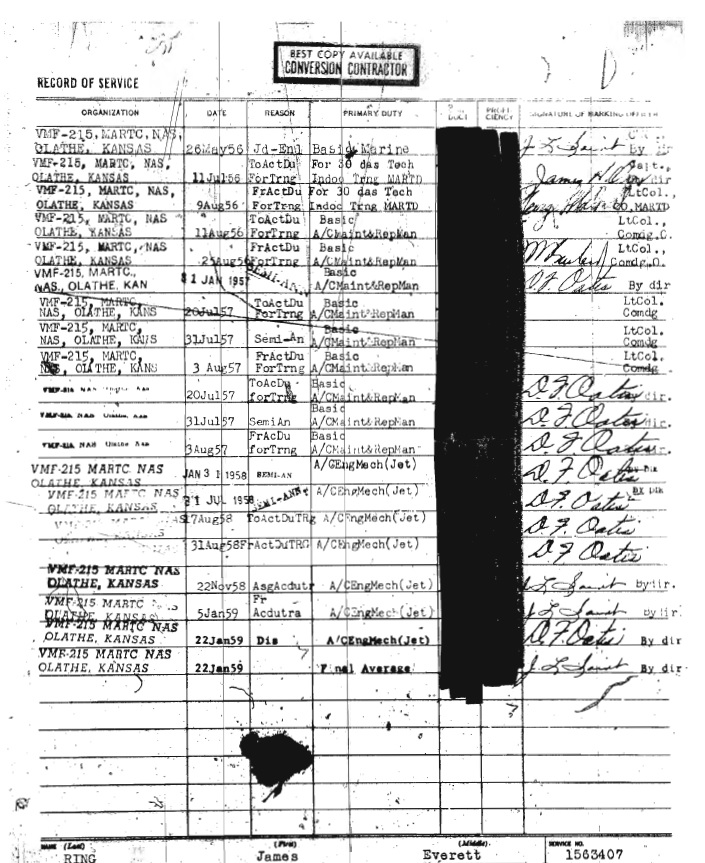 BEST COPY AVAILABLE
CONVERSION CONTRACTOR
RECORD OF SERVICE
ORGANIZATION DATE REASON PRIMARY DUTY DUCT PROFI CIENCY SIGNATURE OF MARKING OFFICER
VMF-215, MARTC, NAS,
OLATHE, KANSAS 26May56 Jd-Enl Basic Marine By Dir
VMF-215, MARTC, NAS, ToActDu For 30 das Tech
OLATHE, KANSAS 11Jul56 ForTrng Indoc Trng MARTD By dir
VMF-215, MARTC, NAS, FrActDu For 30 das Tech LtCol,
OLATHE, KANSAS 9Aug56 ForTrng Indoc Trng MARTD CO, MARTD
VMF-215, MARTC, NAS ToActDu Basic LtCol.,
OLATHE, KANSAS 11Aug56 ForTrng A/CMaint&RepMan Comdg.O.
VMF-215, MARTC, NAS FrActDu Basic LtCol.,
OLATHE, KANSAS 25Aug56 ForTrng A/CMaint&RepMan Comdg.O.
VMF-215, MARTC., Basic
NAS., OLATHE, KAN 31 JAN 1957 SEMI-ANN. A/CMaint&RepMan D F Oates By dir
VMF-215, MARTC, ToActDu Basic LtCol.
NAS, OLATHE, KANS 20Jul57 ForTrng A/CMaint&RepMan Comdg
VMF-215, MARTC, Basic LtCol.
NAS, OLATHE, KANS 31Jul57 Semi-An A/CMaint&RepMan Comdg
VMF-215, MARTC, FrActDu Basic LtCol.
NAS, OLATHE, KANS 3 Aug57 ForTrng A/CMaint&RepMan Comdg
ToAcDu Basic
VMF-215 NAS Olathe Kan 20Jul57 forTrng A/CMaint&RepMan D. F. Oates By dir.
Basic
VMF-215 NAS Olathe Kan 31Jul57 SemiAn A/CMaint&RepMan D. F. Oates By dir.
FrAcDu Basic
VMF-215 NAS Olathe Kan 3Aug57 forTrng A/CMaint&RepMan D. F. Oates By dir.
VMF-215 MARTC NAS A/CEngMech(Jet)
OLATHE, KANSAS JAN 31 1958 SEMI-AN D. F. Oates BY DIR
VMF-215 MARTC NAS A/CEngMech(Jet) BY DIR
OLATHE, KANSAS 31 JUL 1958 SEMI-ANN D. F. Oates
17Aug58 ToActDuTRg A/CEngMech(Jet) D. F. Oates
31Aug58 FrActDuTRG A/CEngMech(Jet) D. F. Oates
VMF-215 MARTC NAS
OLATHE, KANSAS 22Nov58 AsgAcdutr A/CEngMech(Jet) by dir.
VMF-215 MARTC Fr
OLATHE, KANSAS 5Jan59 Acdutra A/CEngMech(Jet) by dir.
VMF-215 MARTC NAS
OLATHE, KANSAS 22Jan59 Dis A/CEngMech(Jet) D. F. Oates By dir
VMF-215 MARTC NAS
OLATHE, KANSAS 22Jan59 Final Average By dir
NAME (Last) (First) (Middle) SERVICE NO.
RING James Everett 1563407